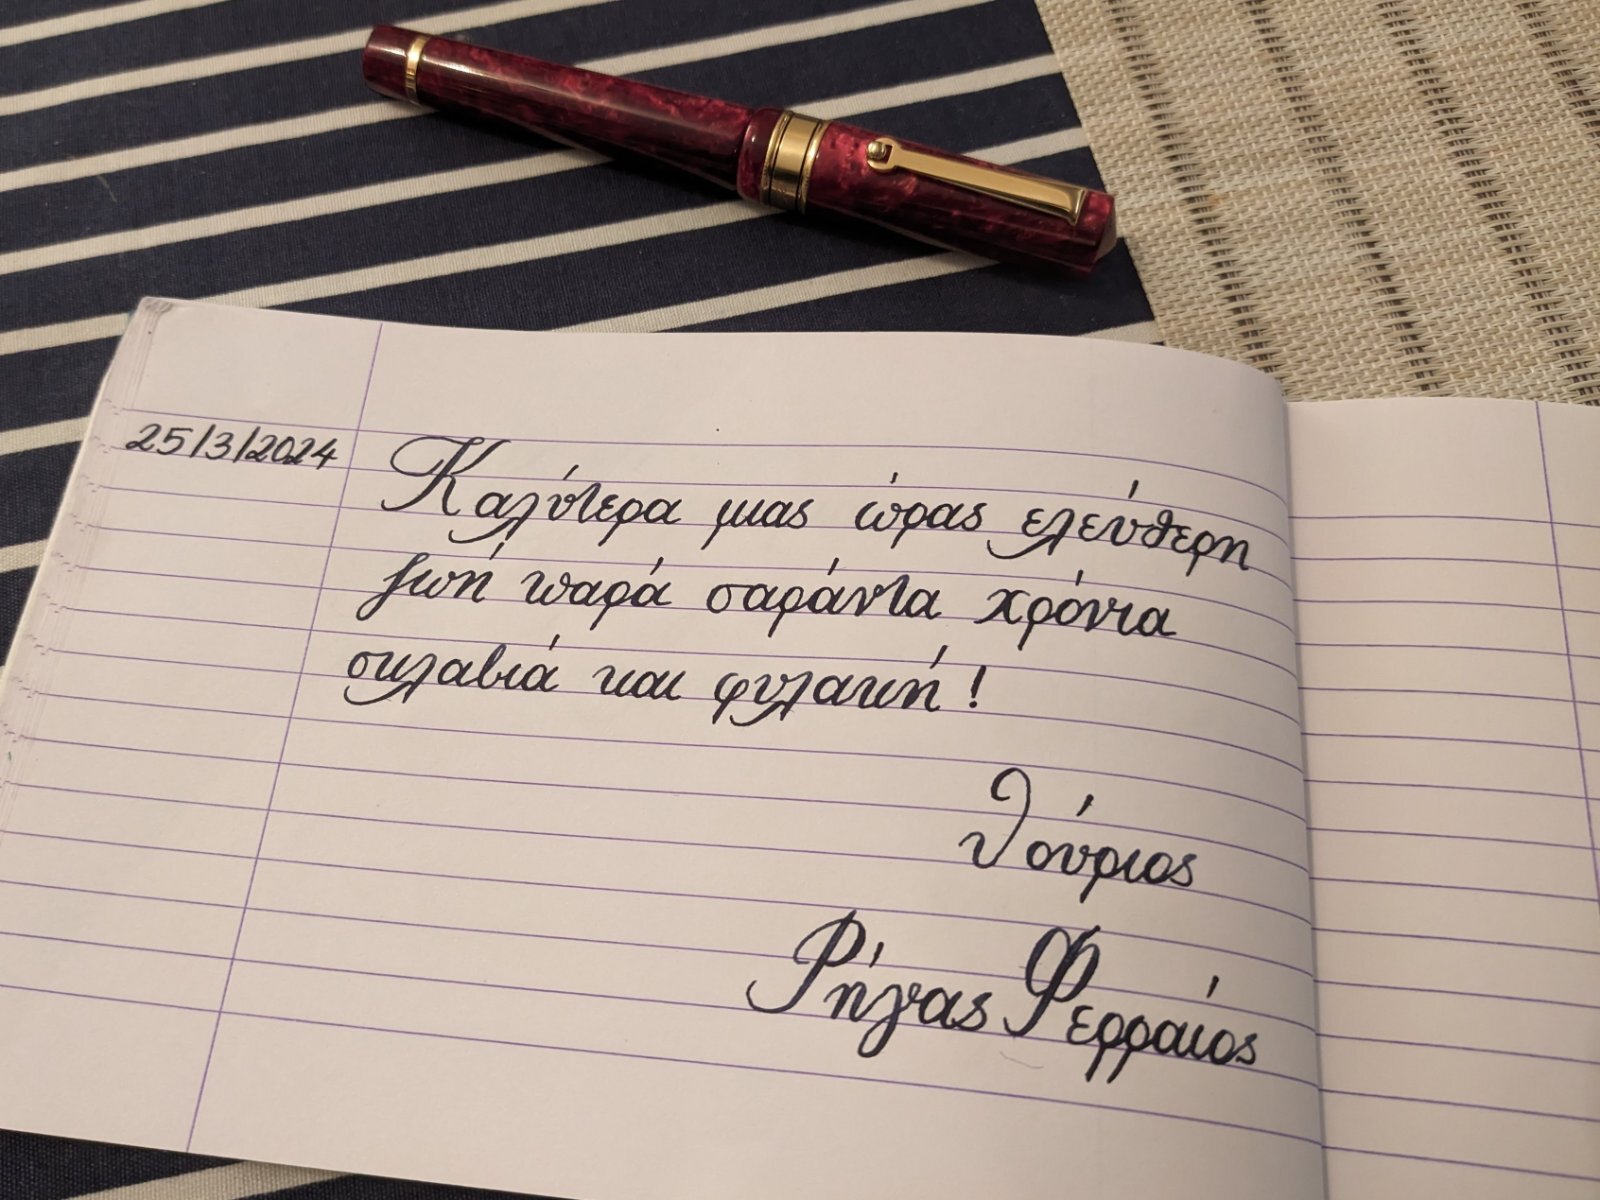 25/3/2024 Καλύτερα μιας ώρας ελεύθερη
ζωή παρά σαράντα χρόνια
σκλαβιά και φυλακή!
Θούριος
Ρήγας Φερραίος